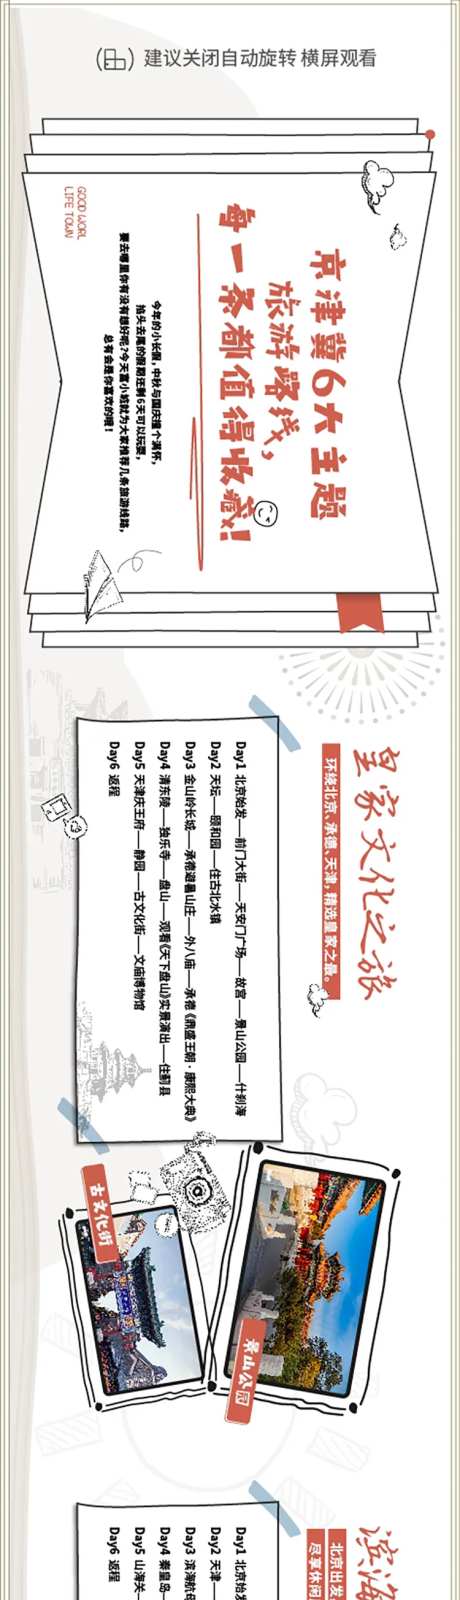 建议关闭自动旋转 横屏观看
京津冀6大主题
旅游路线，
每一条都值得收藏！
今年的小长假，中秋与国庆撞个满怀，
掐头去尾的假期还剩6天可以玩耍，
要去哪里你有没有想好呢？今天富小城就为大家推荐几条旅游线路，
总有会是你喜欢的哦！
GOOD WORL
LIFE TOWN
皇家文化之旅
环绕北京、承德、天津，精选皇家之最。
Day1 北京始发——前门大街——天安门广场——故宫——景山公园——什刹海
Day2 天坛——颐和园——住古北水镇
Day3 金山岭长城——承德避暑山庄——外八庙——承德《鼎盛王朝·康熙大典》
Day4 清东陵——独乐寺——盘山——观看《天下盘山》实景演出——住蓟县
Day5 天津庆王府——静园——古文化街——文庙博物馆
Day6 返程
景山公园
古文化街
滨海
北京出发
尽享休闲
Day1 北京始发
Day2 天津——
Day3 滨海航母
Day4 秦皇岛—
Day5 山海关—
Day6 返程